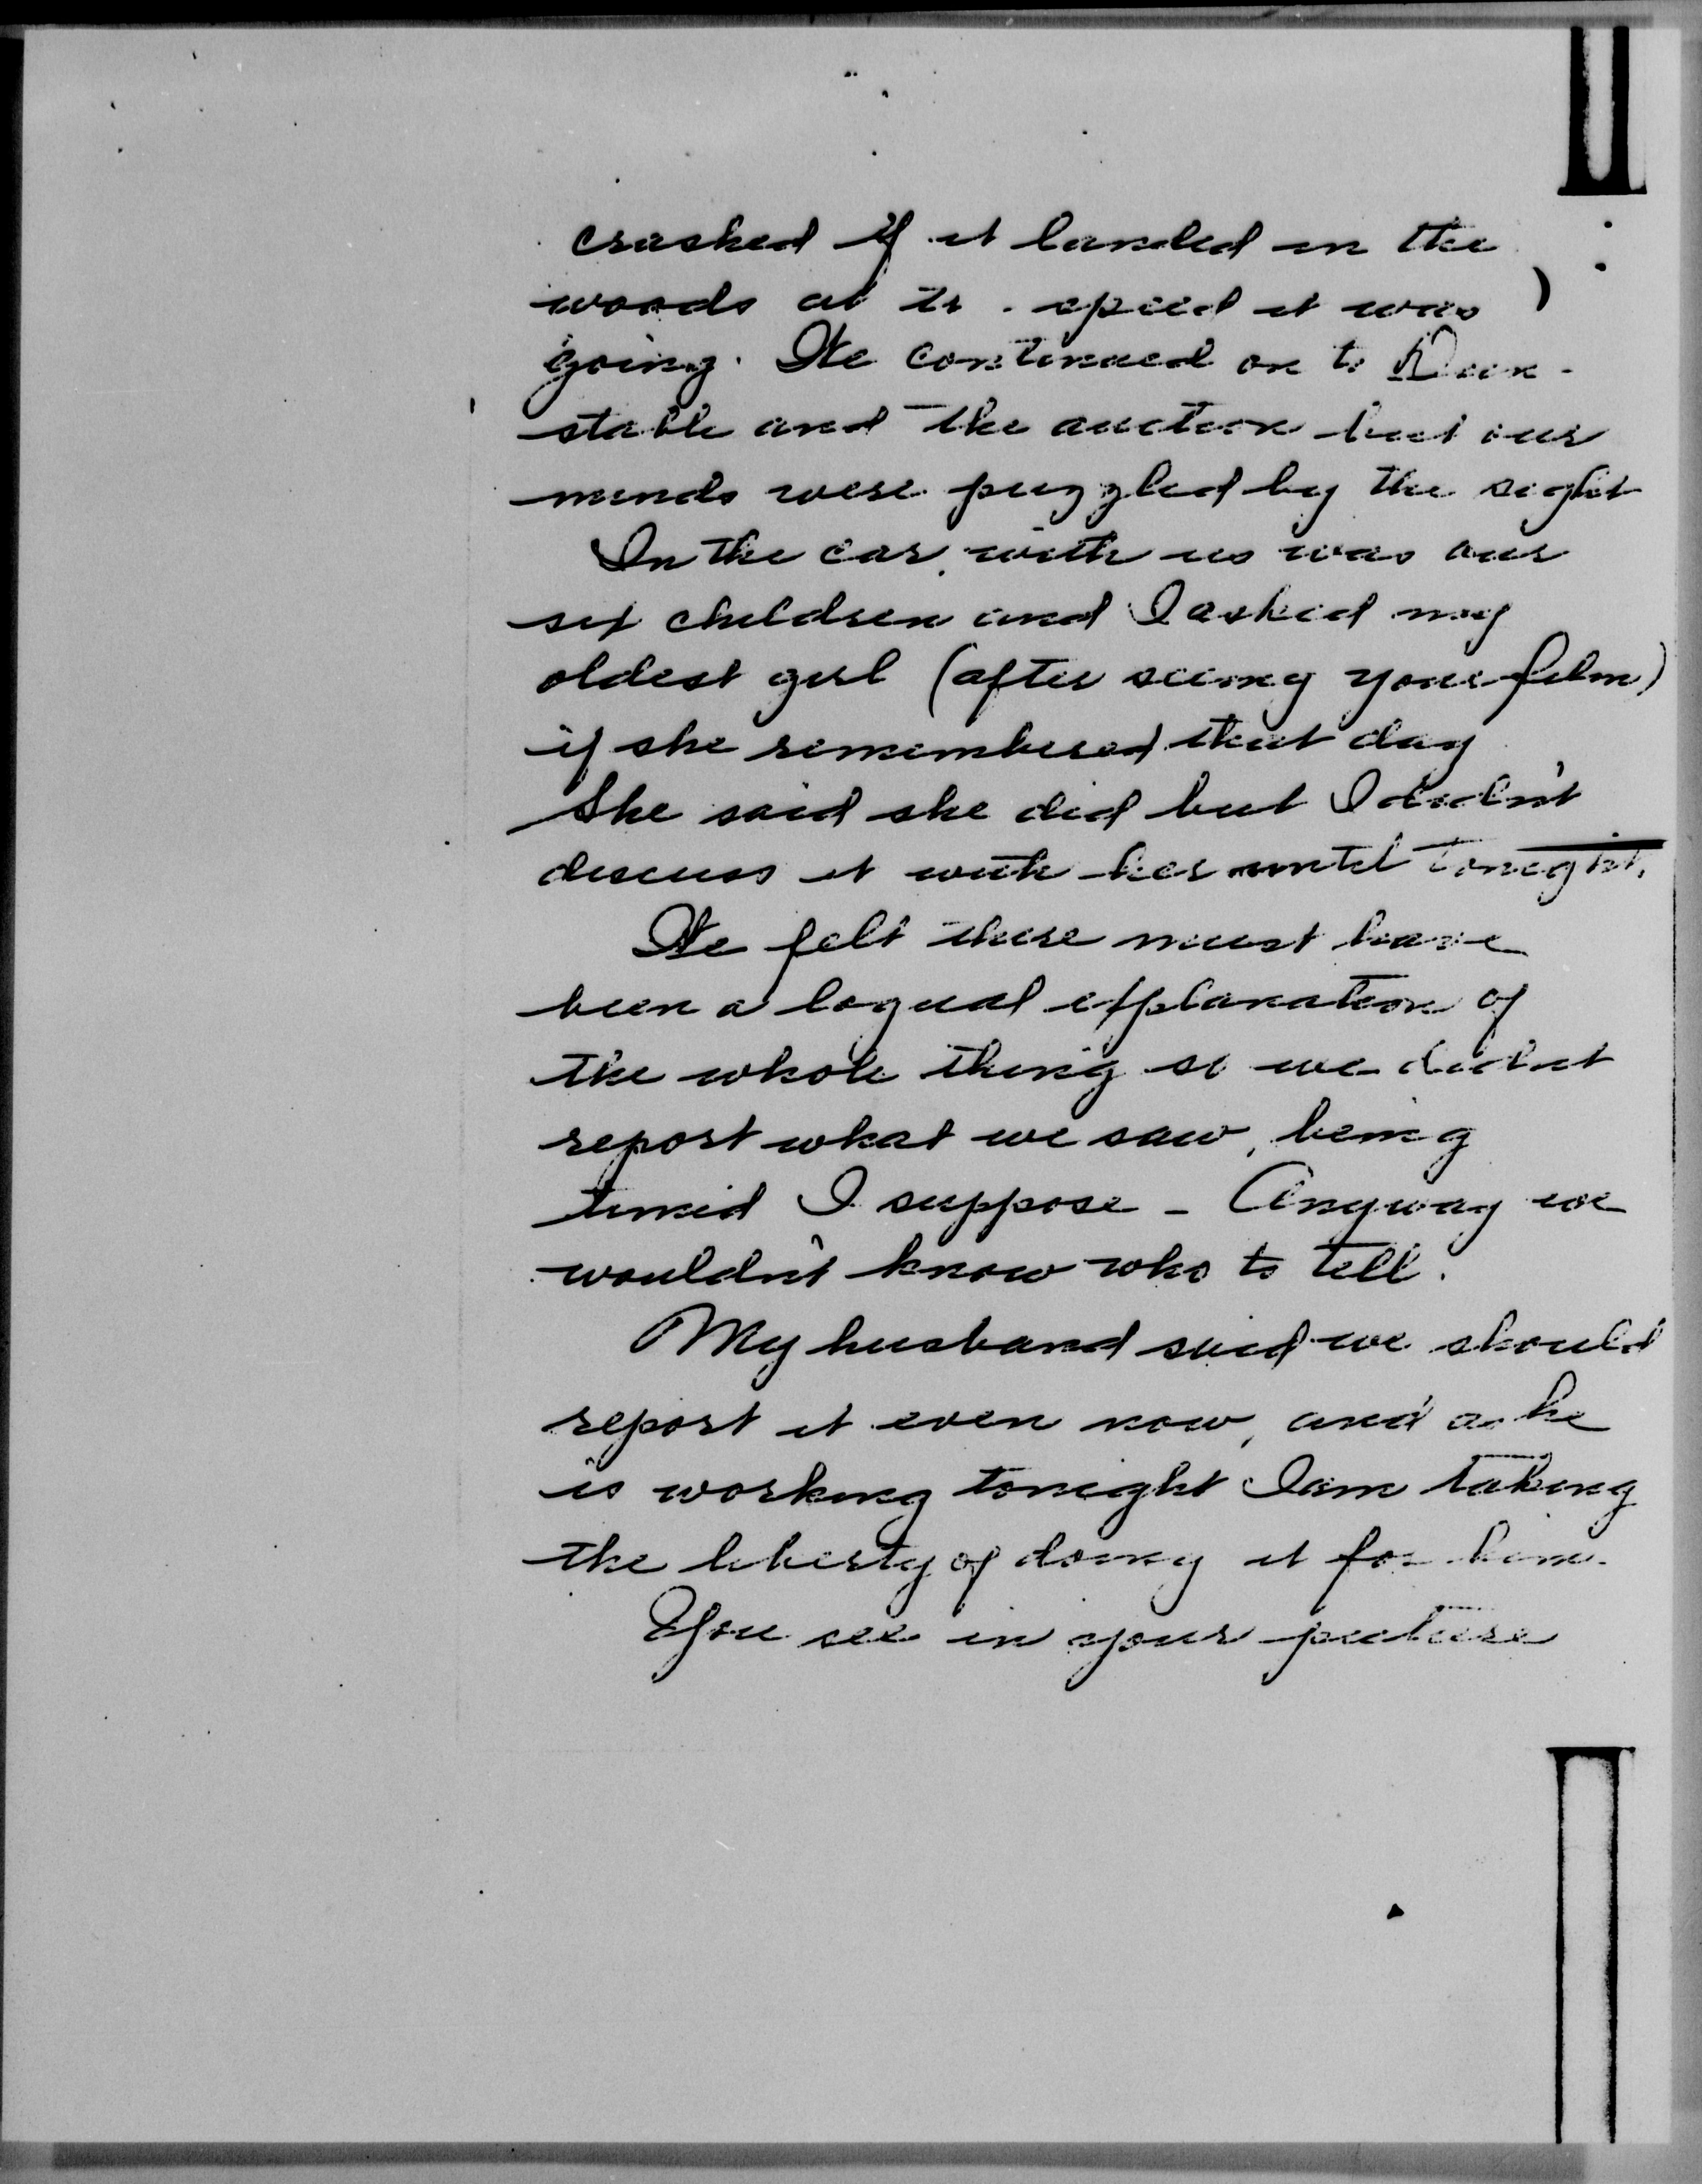 crashed if it landed in the
woods at the speed it was
going. We continued on to Dun-
stable and the auction but our
minds were puzzled by the sight
In the car with us was our
six children and I asked my
oldest girl (after seeing your film)
if she remembered that day
She said she did but I didn't
discuss it with her until tonight.
We felt there must have
been a logical explanation of
the whole thing so we didn't
report what we saw, being
timid I suppose - Anyway we
wouldn't know who to tell.
My husband said we should
report it even now, and as he
is working tonight I am taking
the liberty of doing it for him.
You see in your picture